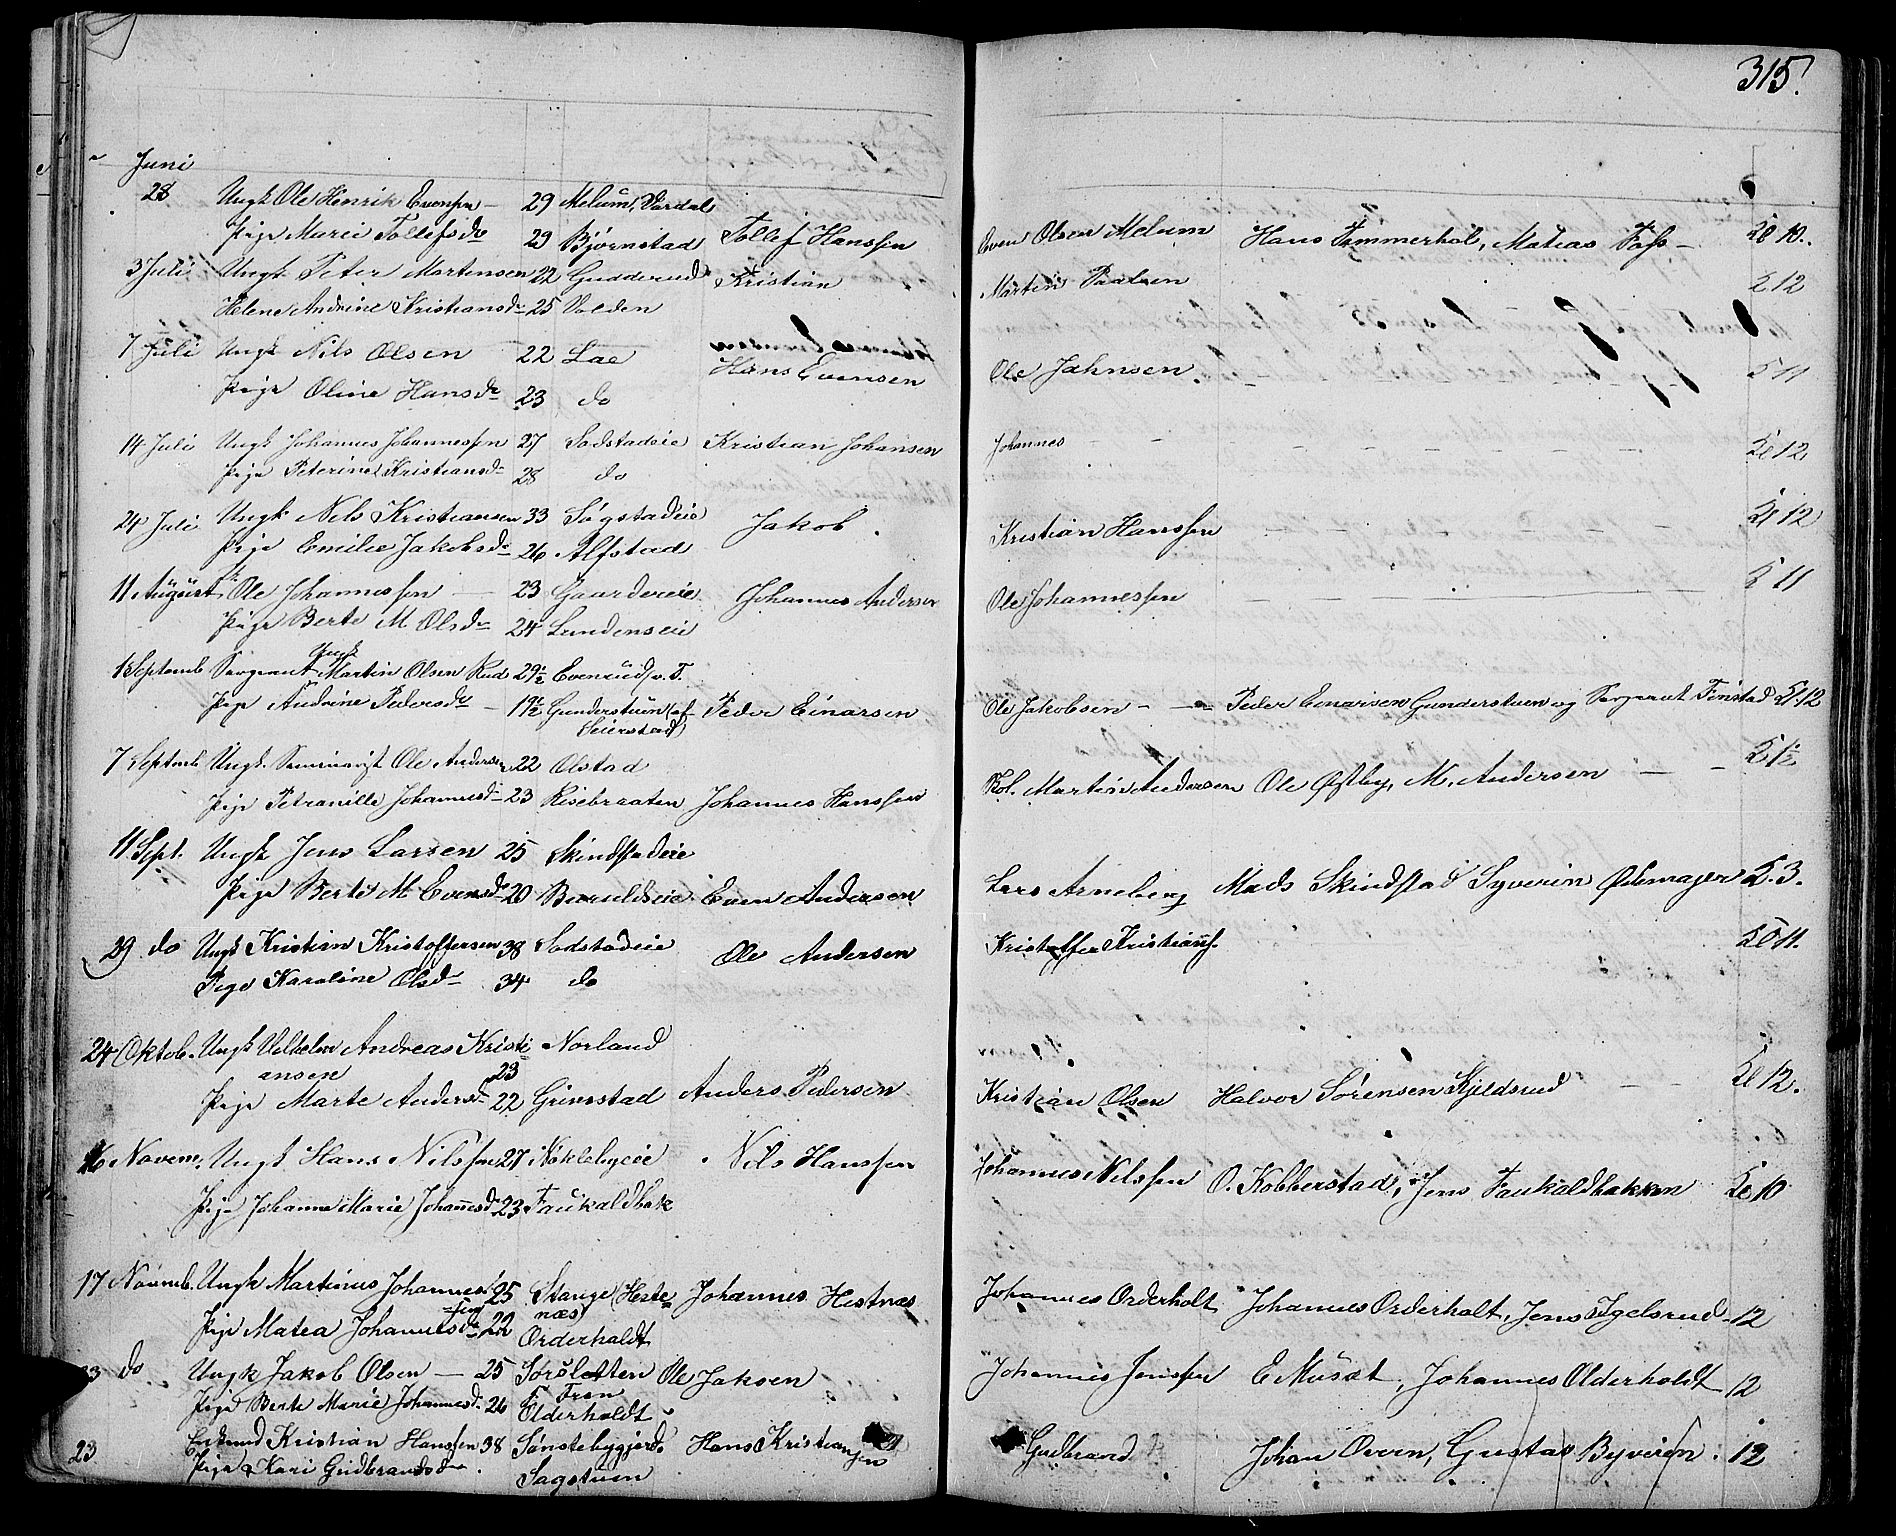 315.
Juni
28 Ungk Ole Henrik Evensen — 29 Melum, Vardal
Pige Marie Tollefsdr 29 Bjørnstad Tollef Hanssen Even Olsen Melum Hans Tømmerhol, Matias
3 Juli Ungk Peter Martensen 22 Gudderud Kristian Martin Paulsen 12
Helene Andrine Kristiansdr 25 Volden
7 Juli Ungk Nils Olsen 22 Lae Hans Evensen Ole Jahnsen 11
Pige Oline Hansdr 23 do
14 Juli Ungk Johannes Johannessen 27 Sodstadeie Kristian Johansen Johannes — — 12
Pige Peterine Kristiansdr 28 do
24 Juli Ungk Nils Kristiansen 33 Søgstadeie Jakob Kristian Hanssen — — 12
Pige Emilie Jakobsdr 26 Alfstad
11 August Ole Johannessen — 23 Gaardereie Johannes Andersen Ole Johannessen — — 11
Pige Berte M Olsdr 24 Lundenseie
1 Septemb Sergeant Ungk Martin Olsen Rud 29½ Evenrud v. T.
Pige Andrine Pedersdr — 19½ Gunderstuen (af Seierstad) Peder Einarsen Ole Jakobsen — Peder Einarsen Gunderstuen og Sergeant Finstad 12
7 Septemb Ungk. Seminarist Ole Andersen 22 Olstad
Pige Petranille Johannesdr 23 Risebraaten Johannes Hanssen Martin Andersen Ole Østby, M. Andersen — —
11 Sept. Ungk Jens Larsen 25 Skindstadeie
Pige Berte M Evensdr 20 Even Andersen Lars Arneberg Mads Skindstad Syverin 3.
29 do Ungk Kristian Kristoffersen 38 Sodstadeie Ole Andersen Kristoffer Kristians. 11.
Pige Karoline Olsdr 34 do
24 Oktob. Ungk Vilhelm Andreas Kristi Norland
ansen 23
Pige Marte Andersdr 22 Grimstad Anders Pedersen Kristian Olsen Halvor Sörensen Kjeldsrud — — 12.
16 Novem. Ungk Hans Nilssen 27 Nøklebyeie Nils Hanssen Johannes Nilssen O. Kobberstad, Jens Faukaldbakken 10
Pige Johanne Marie Johannesdr 23 Faukaldbak
17 Novemb. Ungk Martinus Johannes 25 Stange (Heste Johannes Hestnæs Johannes Orderholt Johannes Orderholt, Jens Igelsrud 12
sen næs)
Pige Matea Johannesdr 22 Orderholdt
23 do Ungk Jakob Olsen — 25 Sørsletten Ole Jaksen Johannes Jenssen E Musæt, Johannes Olderholdt 12
Fron
Pige Berte Marie Johannesdr. 26 Olderholdt
23 Enkemd Kristian Hanssen 38 Sønstebygjord. Hans Kristiansen Gudbrand Johan Oven, Gustav Byveien. 12
Pige Kari Gudbrandsdr Sagstuen